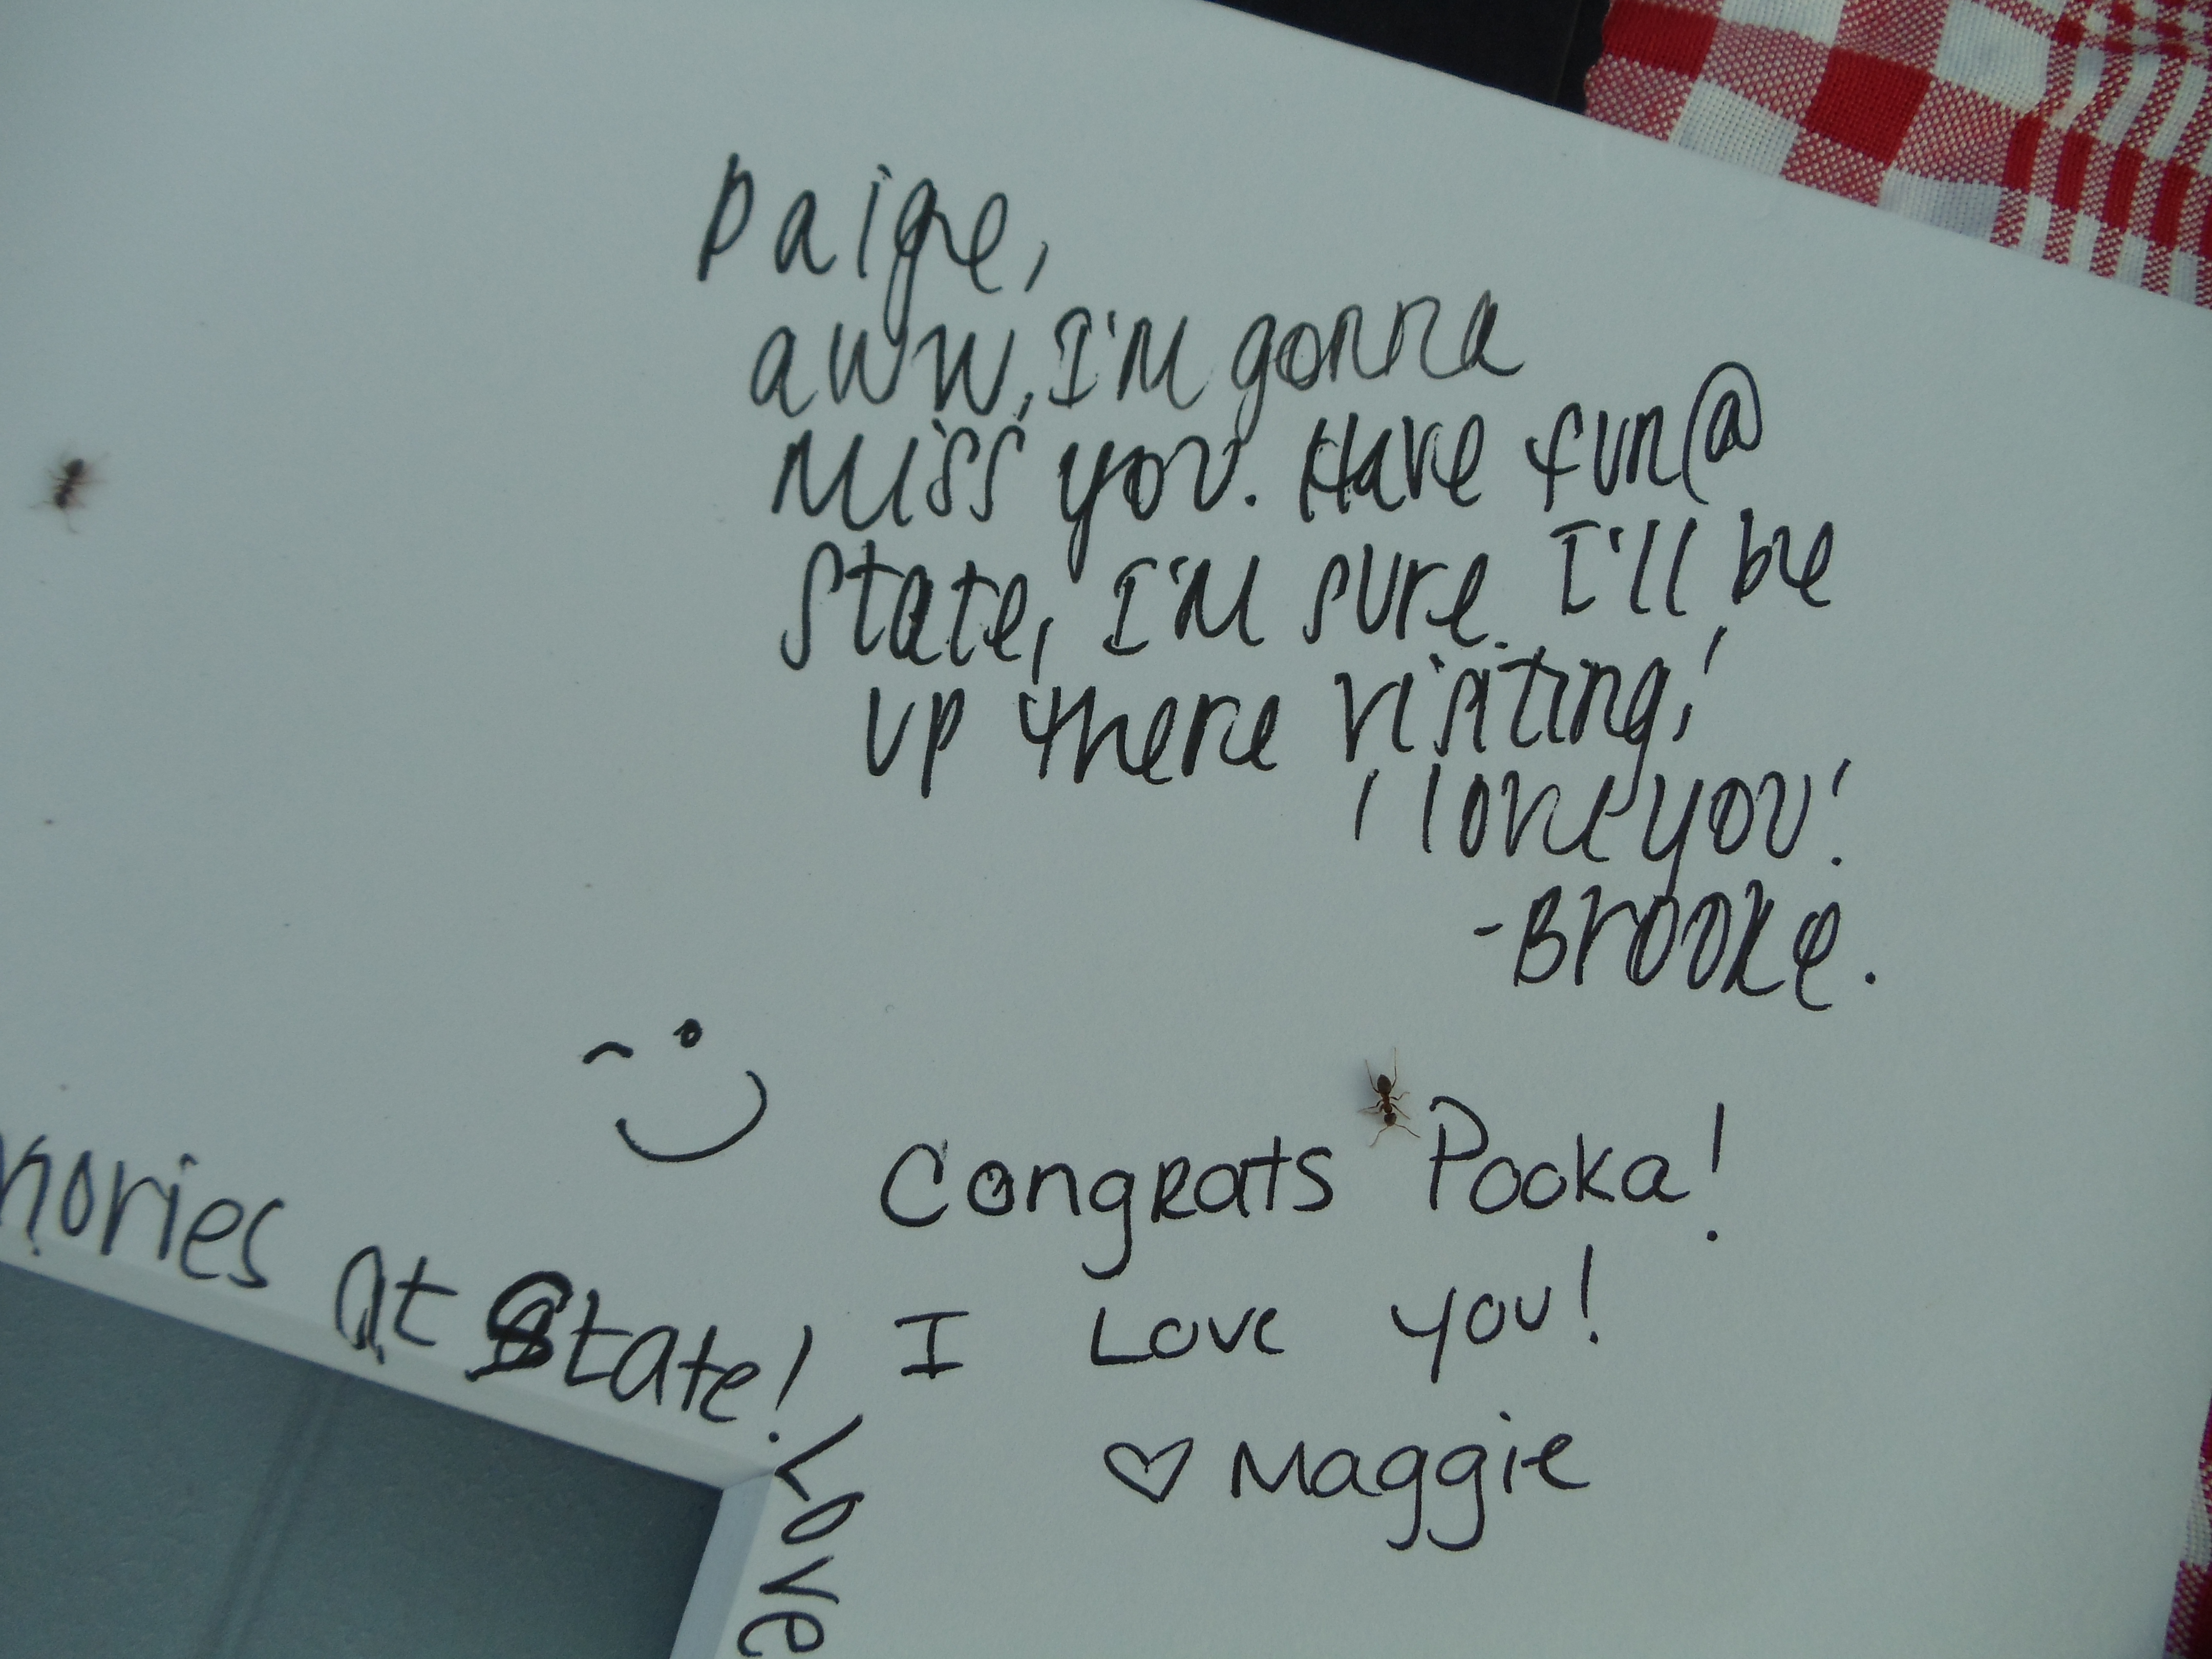 Paige,
aww, I'm gonna
miss you. Have fun @
state, I'm sure I'll be
up there visiting!
I love you!
-Brooke.
Congrats Pooka!
I Love you!
♡ Maggie
at State!
Love